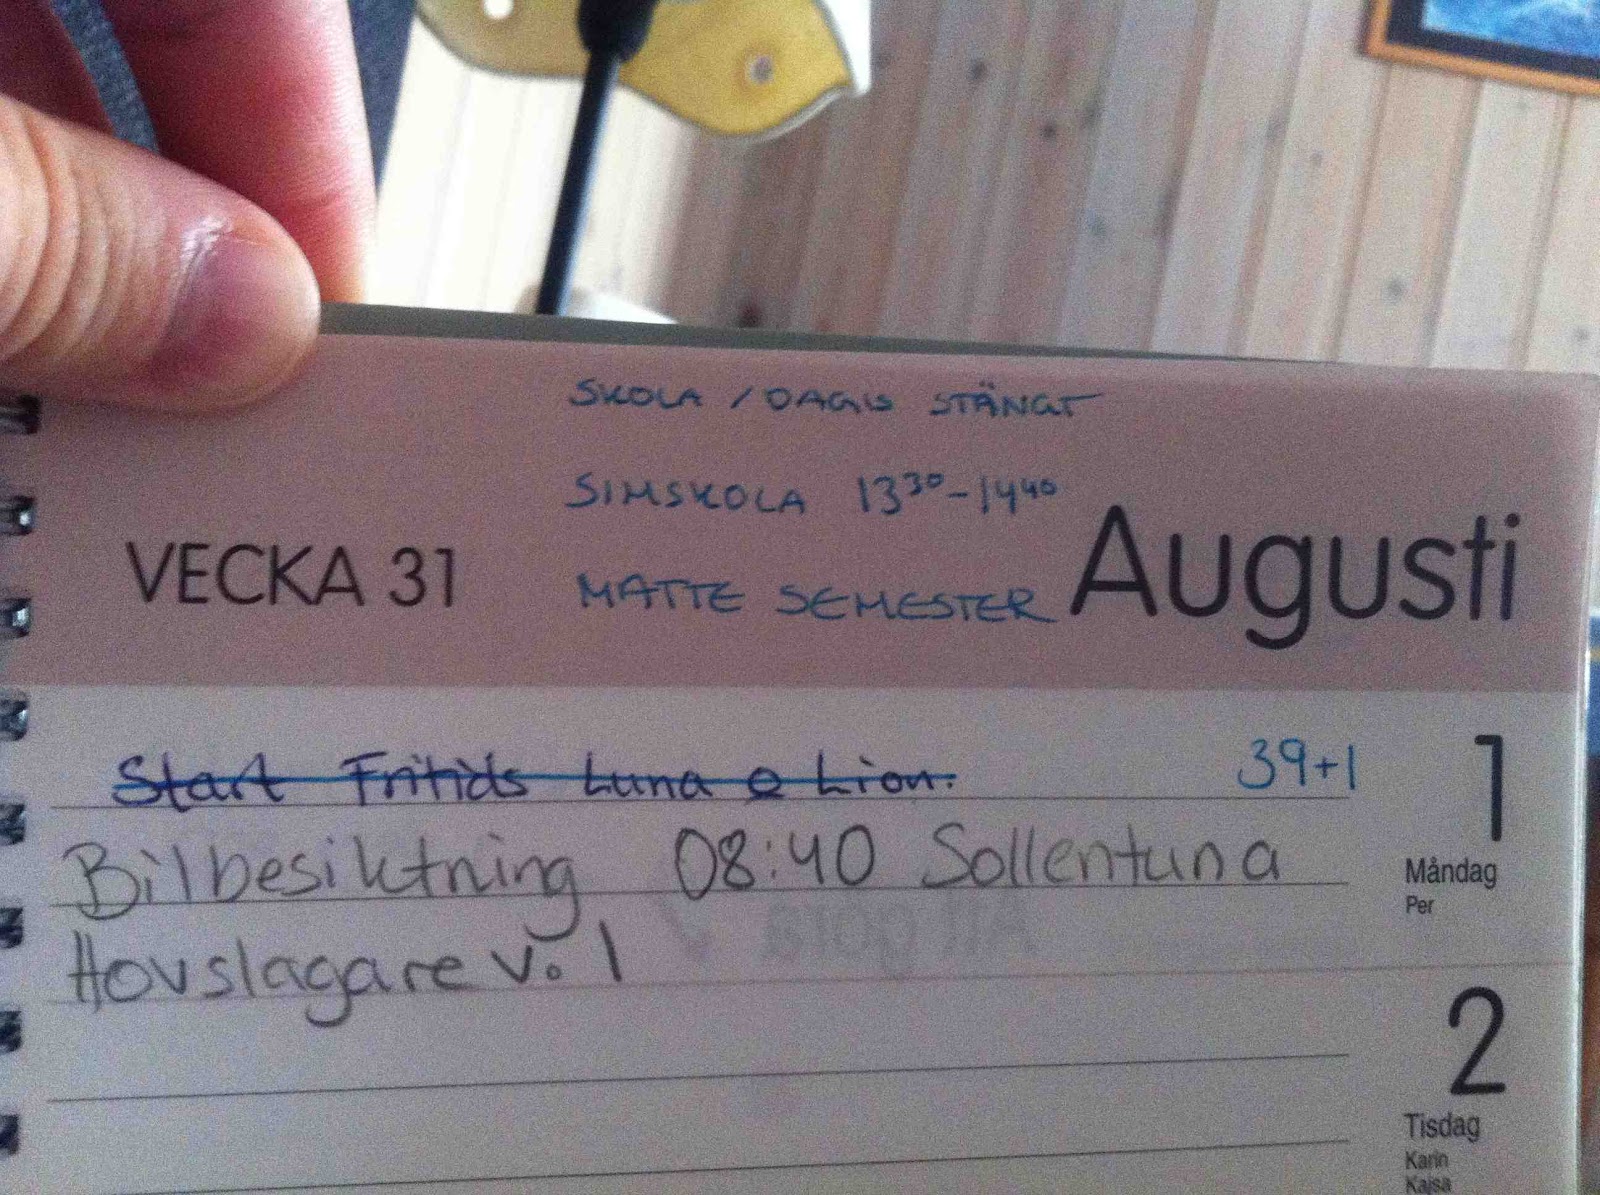 SKOLA / DAGIS STÄNGT
SIMSKOLA 13³⁰-14⁴⁰
VECKA 31
MATTE SEMESTER
Augusti
Start Fritids Luna o Lion.
39+1
1
Bilbesiktning 08:40 Sollentuna
Måndag
Per
Hovslagare v. 1
2
Tisdag
Karin
Kajsa